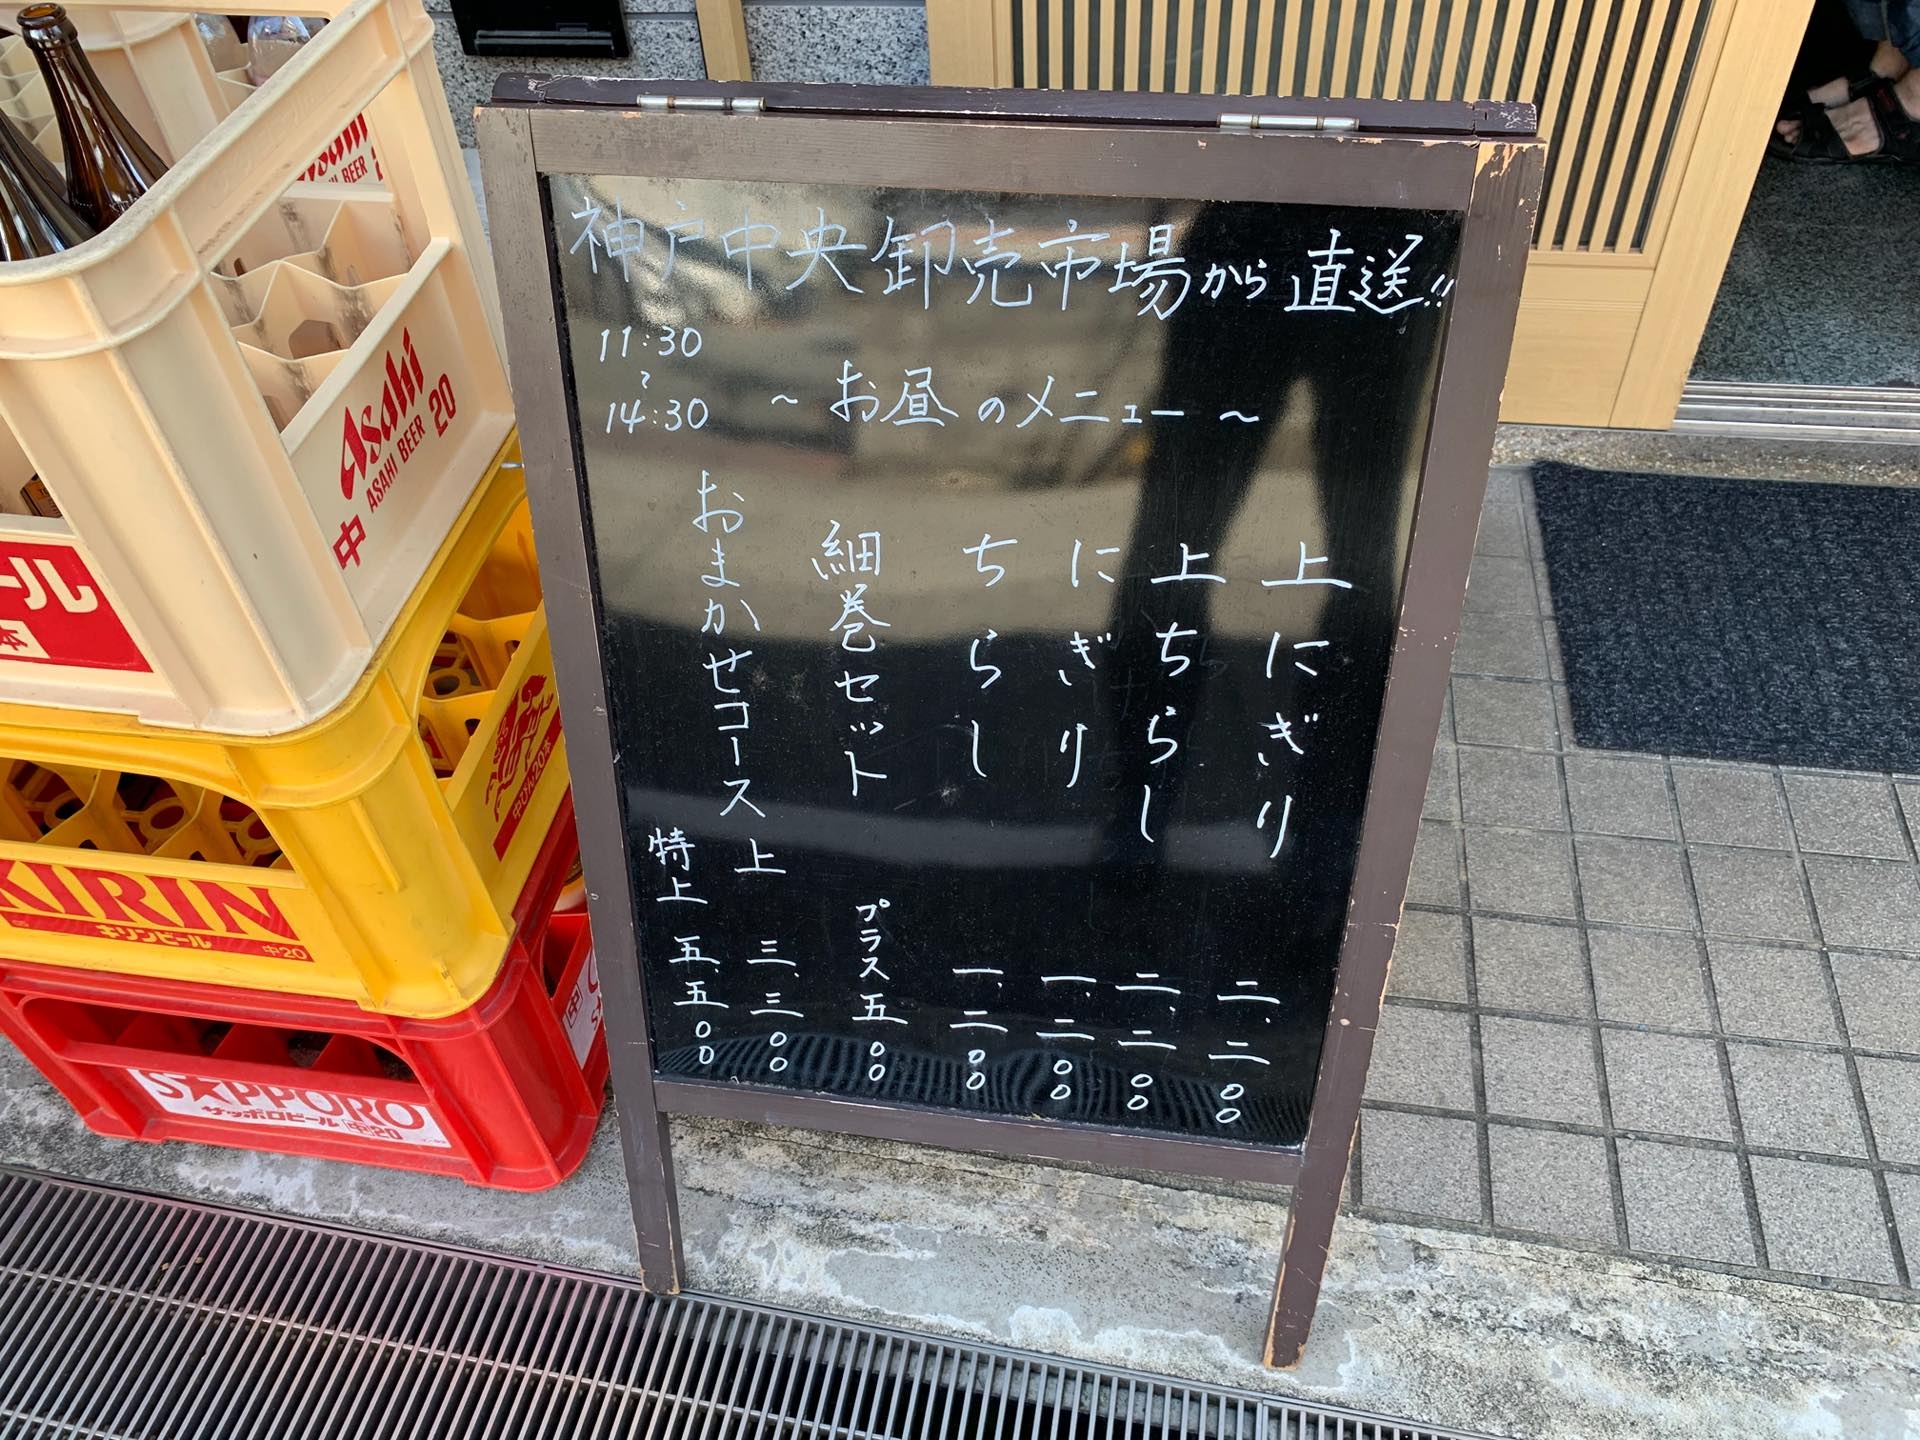 神戸中央卸売市場から直送!!
11:30
〜
14:30
〜お昼のメニュー〜
上にぎり 二、二〇〇
上ちらし 二、二〇〇
にぎり 一、二〇〇
ちらし 一、二〇〇
細巻セット プラス五〇〇
おまかせコース 上 三、三〇〇
特上 五、五〇〇
Asahi
BEER
Asahi
ASAHI BEER
中 20
ール
本
KIRIN
キリンビール
中20
中びん20本
SAPPORO
サッポロビール 中20